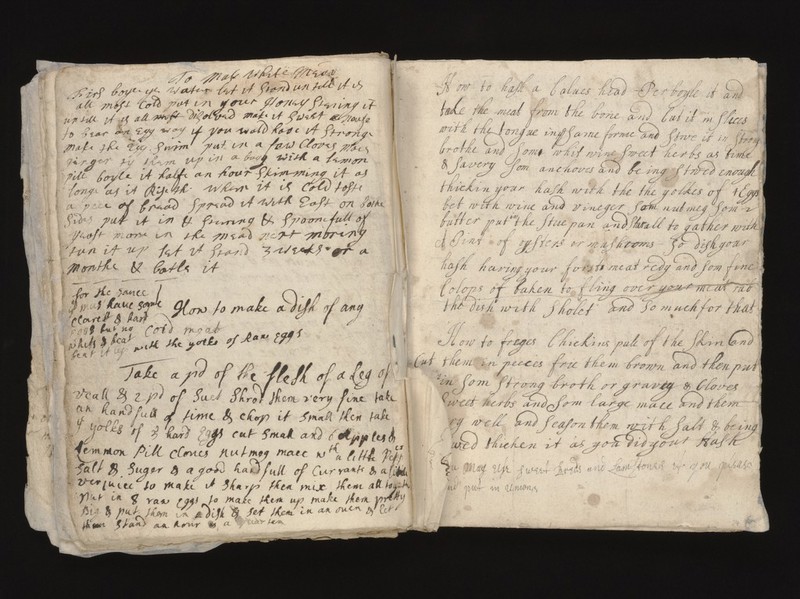 To Mak White Mead
First boyle ye Water let it Stand untill it is
all most Cold put in your Honey Stiring it
untill it is all most disolved mak it Swet anouf
to bear an Egg way if you would have it Strong
make the Egg Swim put in a few Cloves Mace
ginger ty them up in a bag with a lemon
pill boyle it halfe an hour Skimming it as
long as it Riseth When it is Cold toste
a pece of bread Spread it With East on bothe
Sides put it in & Spoonfull of
yeast more in the mead next morning
tun it up let it Stand 3 weeks or a
Monthe & botle it
for the sauce
you must have some
claret & hard
eggs but no
whits & heat
beat it up with the yolks of Raw Eggs
How to make a dish of any
Cold meat
Take a pd of the flesh of a leg of
veall & 2 pd of Suit Shrod them very fine take
an handfull of time & chop it Small then take
4 yolks of hard Eggs cut Small and 6 Apples &
lemmon Pill Cloves nutmeg mace wth a little Pepp
Salt & Suger & a good handfull of Currants & a little
verjuice to make it Sharp then mix them all together
Put in 8 raw eggs to mack them up make them pretty
Big & put them in a dish & Set them in an oven & let
them Stand an hour & a quarter
How to hash a Calves head Perboyle it and
take the meat from the bone and Cut it in Slices
with the tongue in the Same forme and Stwe it in Strong
brothe and Som whit wine Sweet herbs as time
& Savery Som anchoves and being Stwed enough
thickin your hash with the the yolkes of 4 Eggs
bet with wine and vineger Som nutmeg Som
butter put in the Stue pan and Shak all to gather with
oysters or mushrooms So dish your
hash having your forst meat redy and som fine
Colops of baken to fling over your meat rub
the dish with Sholet and So much for that
How to freges Chickins pull of the Skin and
Cut them in peeces frie them brown and then put
in Som Strong broth or gravey & Cloves
Sweet herbs and Som large mace and them
very well and Season them with Salt & being
thicken it as you did your Hash
you May use Sweet breds and Lamstones if you please
and put in